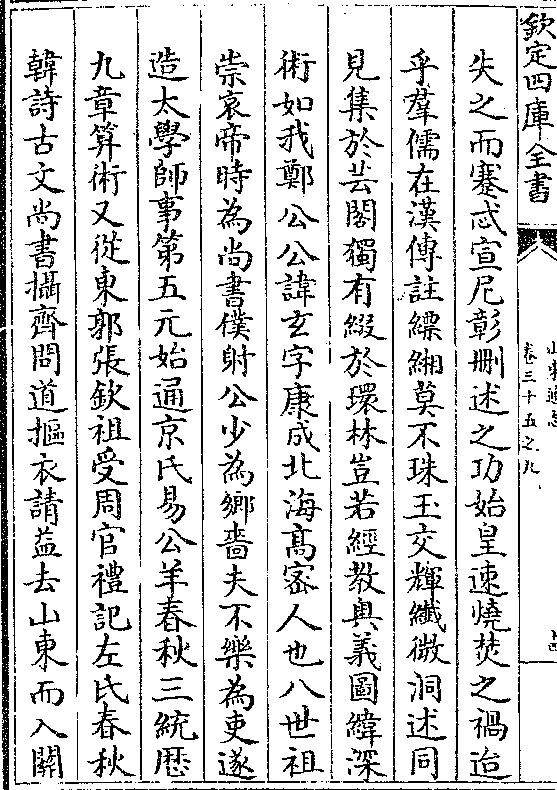 欽定四庫全書
卷三十五之九
失之而蹇忒宣尼彰刪述之功始皇速燒焚之禍迨
乎羣儒在漢傳註縹緗莫不珠玉交輝纖微洞述同
見集於芸閣獨有綴於環林豈若經教奥義圖緯深
術如我鄭公公諱玄字康成北海髙密人也八世祖
崇哀帝時為尚書僕射公少為鄉嗇夫不樂為吏遂
造太學師事第五元始通京氏易公羊春秋三統厯
九章算術又從東郭張欽祖受周官禮記左氏春秋
韓詩古文尚書攝齊問道摳衣請益去山東而入關